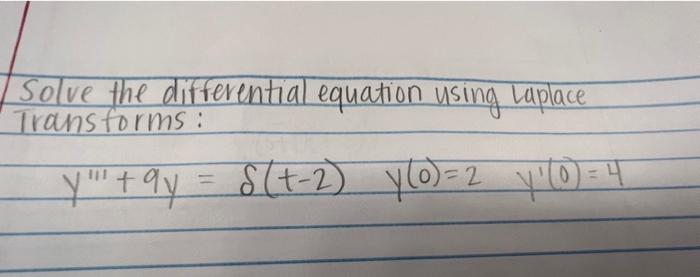 Solve the differential equation using Laplace
Transforms:
y''' + 9y = δ(t-2) y(0)=2 y'(0)=4